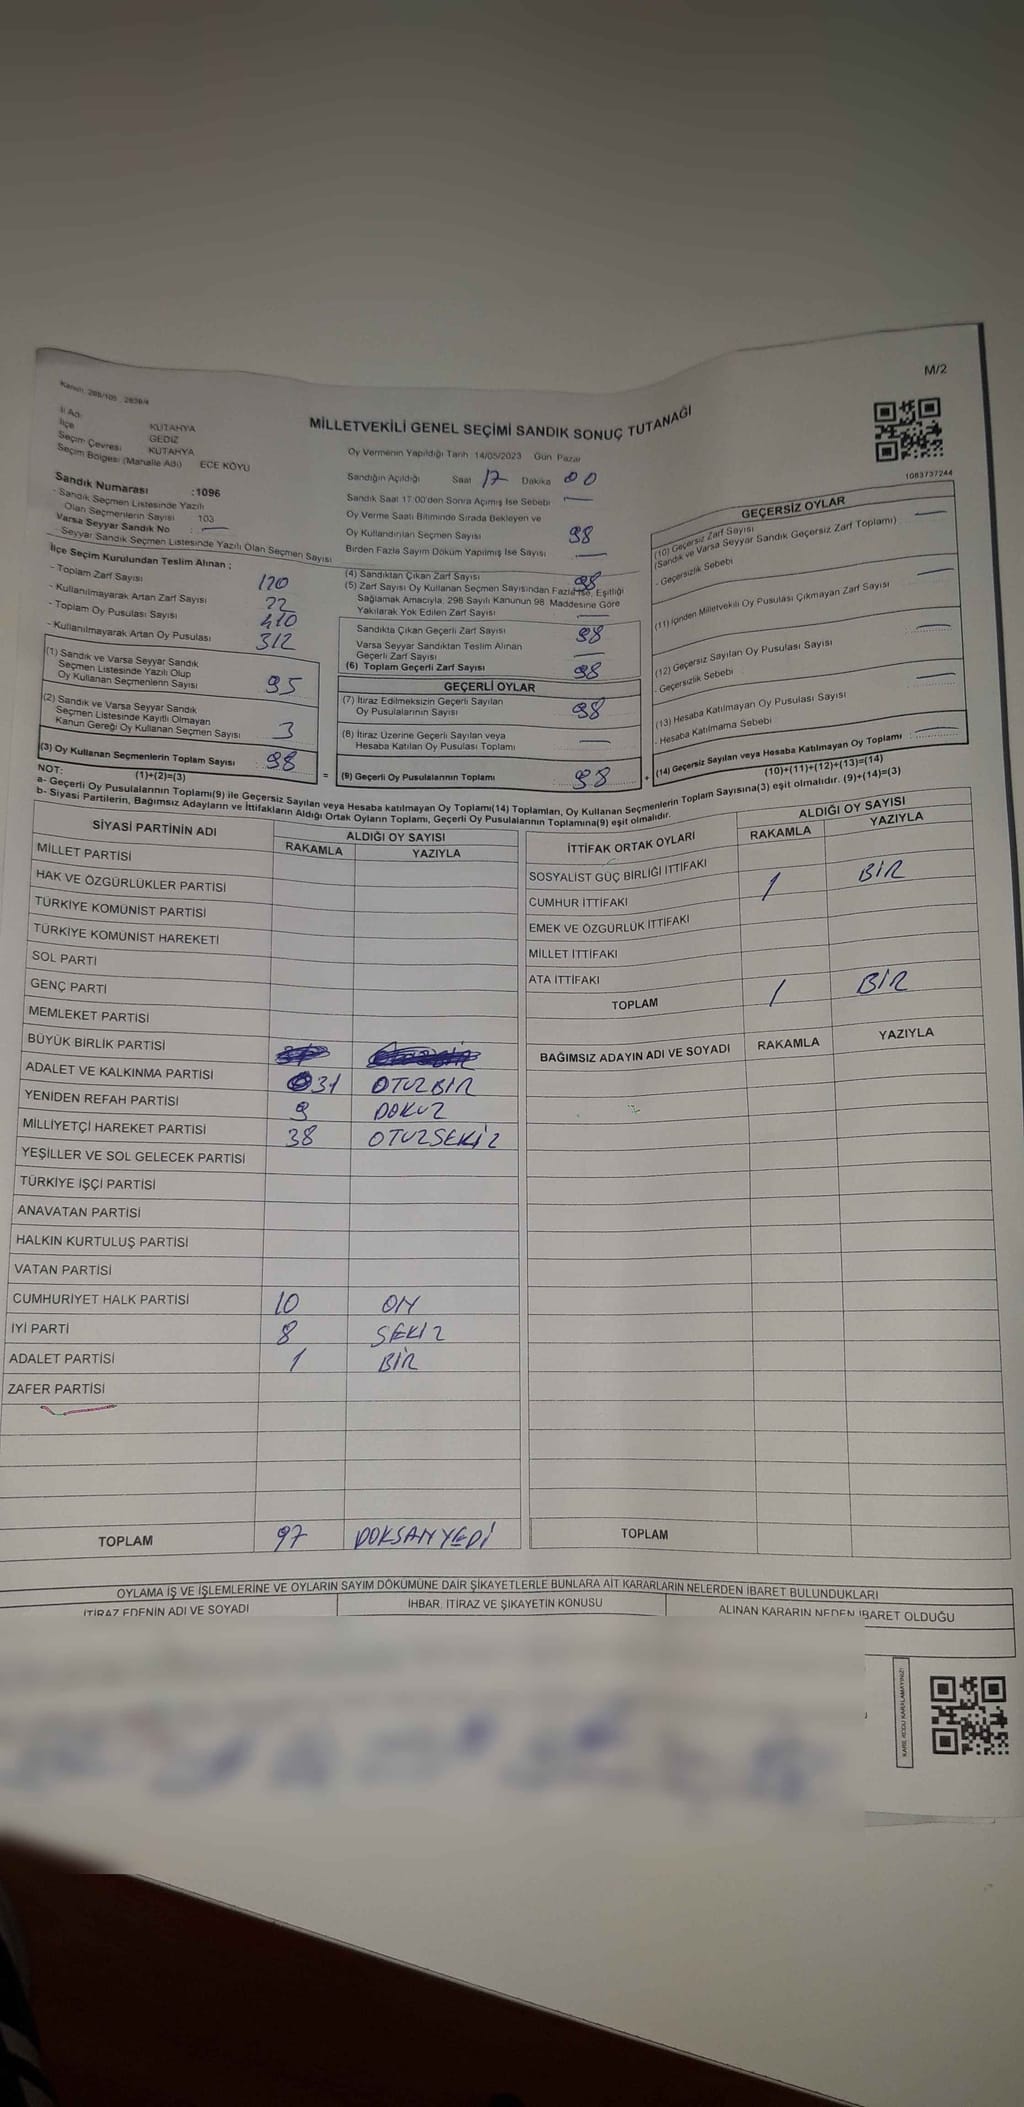 Kanun: 298/105, 2839/4
M/2
İl Adı KÜTAHYA
İlçe GEDİZ
Seçim Çevresi KÜTAHYA
Seçim Bölgesi (Mahalle Adı) ECE KÖYÜ
MİLLETVEKİLİ GENEL SEÇİMİ SANDIK SONUÇ TUTANAĞI
1083737244
Sandık Numarası :1096
- Sandık Seçmen Listesinde Yazılı
Olan Seçmenlerin Sayısı 103
Varsa Seyyar Sandık No : —
- Seyyar Sandık Seçmen Listesinde Yazılı Olan Seçmen Sayısı
İlçe Seçim Kurulundan Teslim Alınan ;
- Toplam Zarf Sayısı 120
- Kullanılmayarak Artan Zarf Sayısı 22
- Toplam Oy Pusulası Sayısı 410
- Kullanılmayarak Artan Oy Pusulası 312
(1) Sandık ve Varsa Seyyar Sandık
Seçmen Listesinde Yazılı Olup
Oy Kullanan Seçmenlerin Sayısı 95
(2) Sandık ve Varsa Seyyar Sandık
Seçmen Listesinde Kayıtlı Olmayan
Kanun Gereği Oy Kullanan Seçmen Sayısı 3
(3) Oy Kullanan Seçmenlerin Toplam Sayısı 98
(1)+(2)=(3)
Oy Vermenin Yapıldığı Tarih 14/05/2023 Gün Pazar
Sandığın Açıldığı Saat 17 Dakika 00
Sandık Saat 17:00'den Sonra Açımış İse Sebebi —
Oy Verme Saati Bitiminde Sırada Bekleyen ve
Oy Kullandırılan Seçmen Sayısı 98
Birden Fazla Sayım Döküm Yapılmış İse Sayısı —
(4) Sandıktan Çıkan Zarf Sayısı 98
(5) Zarf Sayısı Oy Kullanan Seçmen Sayısından Fazla İse, Eşitliği
Sağlamak Amacıyla, 298 Sayılı Kanunun 98. Maddesine Göre
Yakılarak Yok Edilen Zarf Sayısı —
Sandıkta Çıkan Geçerli Zarf Sayısı 98
Varsa Seyyar Sandıktan Teslim Alınan
Geçerli Zarf Sayısı —
(6) Toplam Geçerli Zarf Sayısı 98
GEÇERLİ OYLAR
(7) İtiraz Edilmeksizin Geçerli Sayılan
Oy Pusulalarının Sayısı 98
(8) İtiraz Üzerine Geçerli Sayılan veya
Hesaba Katılan Oy Pusulası Toplamı —
= (9) Geçerli Oy Pusulalarının Toplamı 98 +
GEÇERSİZ OYLAR
(10) Geçersiz Zarf Sayısı
(Sandık ve Varsa Seyyar Sandık Geçersiz Zarf Toplamı) —
- Geçersizlik Sebebi —
(11) İçinden Milletvekili Oy Pusulası Çıkmayan Zarf Sayısı —
(12) Geçersiz Sayılan Oy Pusulası Sayısı —
- Geçersizlik Sebebi
(13) Hesaba Katılmayan Oy Pusulası Sayısı —
- Hesaba Katılmama Sebebi
(14) Geçersiz Sayılan veya Hesaba Katılmayan Oy Toplamı —
(10)+(11)+(12)+(13)=(14)
NOT:
a- Geçerli Oy Pusulalarının Toplamı(9) ile Geçersiz Sayılan veya Hesaba katılmayan Oy Toplamı(14) Toplamları, Oy Kullanan Seçmenlerin Toplam Sayısına(3) eşit olmalıdır. (9)+(14)=(3)
b- Siyasi Partilerin, Bağımsız Adayların ve İttifakların Aldığı Ortak Oyların Toplamı, Geçerli Oy Pusulalarının Toplamına(9) eşit olmalıdır.
SİYASİ PARTİNİN ADI ALDIĞI OY SAYISI
RAKAMLA YAZIYLA
MİLLET PARTİSİ
HAK VE ÖZGÜRLÜKLER PARTİSİ
TÜRKİYE KOMÜNİST PARTİSİ
TÜRKİYE KOMÜNİST HAREKETİ
SOL PARTİ
GENÇ PARTİ
MEMLEKET PARTİSİ
BÜYÜK BİRLİK PARTİSİ
ADALET VE KALKINMA PARTİSİ 31 OTUZBİR
YENİDEN REFAH PARTİSİ 9 DOKUZ
MİLLİYETÇİ HAREKET PARTİSİ 38 OTUZSEKİZ
YEŞİLLER VE SOL GELECEK PARTİSİ
TÜRKİYE İŞÇİ PARTİSİ
ANAVATAN PARTİSİ
HALKIN KURTULUŞ PARTİSİ
VATAN PARTİSİ
CUMHURİYET HALK PARTİSİ 10 ON
İYİ PARTİ 8 SEKİZ
ADALET PARTİSİ 1 BİR
ZAFER PARTİSİ
TOPLAM 97 DOKSANYEDİ
İTTİFAK ORTAK OYLARI ALDIĞI OY SAYISI
RAKAMLA YAZIYLA
SOSYALİST GÜÇ BİRLİĞİ İTTİFAKI
CUMHUR İTTİFAKI 1 BİR
EMEK VE ÖZGÜRLÜK İTTİFAKI
MİLLET İTTİFAKI
ATA İTTİFAKI
TOPLAM 1 BİR
BAĞIMSIZ ADAYIN ADI VE SOYADI RAKAMLA YAZIYLA
TOPLAM
OYLAMA İŞ VE İŞLEMLERİNE VE OYLARIN SAYIM DÖKÜMÜNE DAİR ŞİKAYETLERLE BUNLARA AİT KARARLARIN NELERDEN İBARET BULUNDUKLARI
İTİRAZ EDENİN ADI VE SOYADI İHBAR, İTİRAZ VE ŞİKAYETİN KONUSU ALINAN KARARIN NEDEN İBARET OLDUĞU
KARE KODU KARALAMAYINIZ!